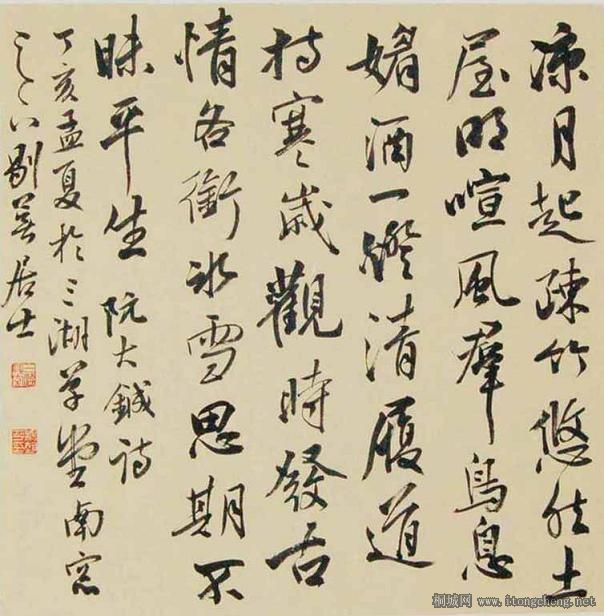 凉月起疎竹悠然土
屋明喧風羣鳥息
媚酒一燈清履道
持寒歲觀時發古
情各銜冰雪思期不
昧平生 阮大鋮詩
丁亥孟夏於三湖草堂南窗
之下 居士
桐城网 www.itongcheng.net